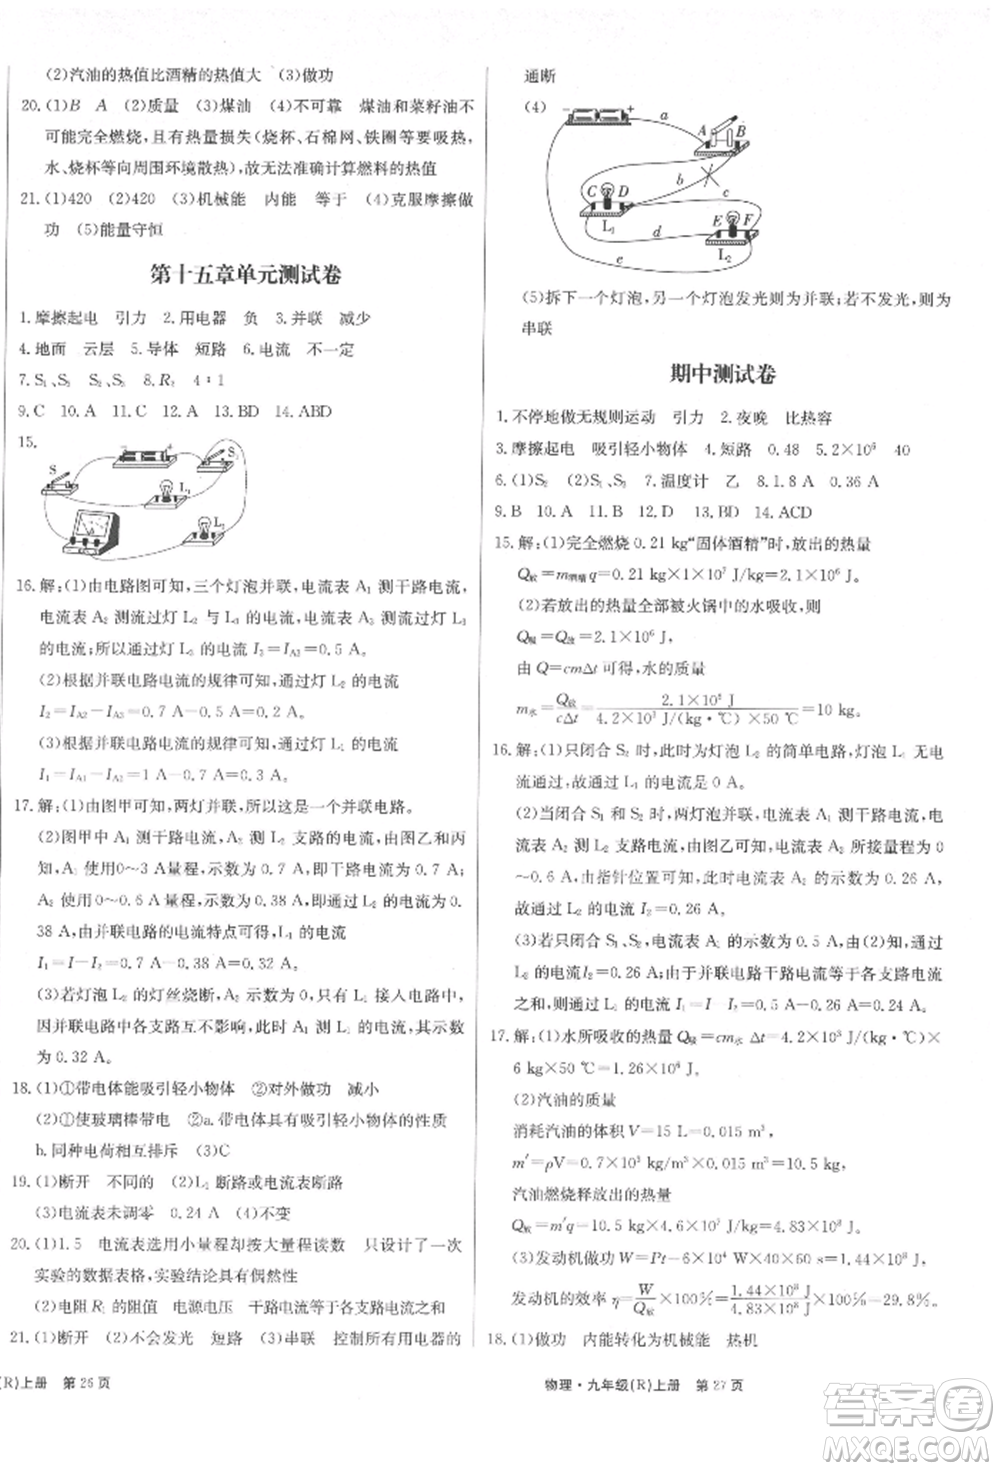 (2)汽油的热值比酒精的热值大 (3)做功
20.(1)B A (2)质量 (3)煤油 (4)不可靠 煤油和菜籽油不
可能完全燃烧,且有热量损失(烧杯、石棉网、铁圈等要吸热,
水、烧杯等向周围环境散热),故无法准确计算燃料的热值
21.(1)420 (2)420 (3)机械能 内能 等于 (4)克服摩擦做
功 (5)能量守恒
第十五章单元测试卷
1.摩擦起电 引力 2.用电器 负 3.并联 减少
4.地面 云层 5.导体 短路 6.电流 不一定
7.S₁、S₂ S₂ S₃ 8.R₂ 4∶1
9.C 10.A 11.C 12.A 13.BD 14.ABD
15.
S S₁ L₁ L₂
16.解:(1)由电路图可知,三个灯泡并联,电流表 A₁ 测干路电流,
电流表 A₂ 测流过灯 L₂ 与 L₃ 的电流,电流表 A₃ 测流过灯 L₃
的电流;所以通过灯 L₃ 的电流 I₃=I_A3=0.5 A。
(2)根据并联电路电流的规律可知,通过灯 L₂ 的电流
I₂=I_A2-I_A3=0.7 A-0.5 A=0.2 A。
(3)根据并联电路电流的规律可知,通过灯 L₁ 的电流
I₁=I_A1-I_A2=1 A-0.7 A=0.3 A。
17.解:(1)由图甲可知,两灯并联,所以这是一个并联电路。
(2)图甲中 A₁ 测干路电流,A₂ 测 L₂ 支路的电流,由图乙和丙
知,A₁ 使用0~3 A量程,示数为 0.7 A,即干路电流为 0.7 A。
A₂ 使用 0~0.6 A 量程,示数为 0.38 A,即通过 L₂ 的电流为 0.
38 A,由并联电路的电流特点可得,L₁ 的电流
I₁=I-I₂=0.7 A-0.38 A=0.32 A。
(3)若灯泡 L₂ 的灯丝烧断,则仅有灯 L₁ 接人电路中,
因并联电路中各支路互不影响,此时 A₁ 测 L₁ 的电流,其示数
为 0.32 A。
18.(1)①带电体能吸引轻小物体 ②对外做功 减小
(2)①使玻璃棒带电 ②a.带电体具有吸引轻小物体的性质
b.同种电荷相互排斥 (3)C
19.(1)断开 不同的 (2)L₁ 断路或电流表断路
(3)电流表未调零 0.24 A (4)不变
20.(1)1.5 电流表选用小量程却按大量程读数 只设计了一次
实验的数据表格,实验结论具有偶然性
(2)电阻 R₁ 的阻值 电源电压 干路电流等于各支路电流之和
21.(1)断开 (2)不会发光 短路 (3)串联 控制所有用电器的
(R)上册 第 26 页
通断
(4)
a A B b c C D L₁ E F d L₂ e
(5)拆下一个灯泡,另一个灯泡发光则为并联;若不发光,则为
串联
期中测试卷
1.不停地做无规则运动 引力 2.夜晚 比热容
3.摩擦起电 吸引轻小物体 4.短路 5.0.48 5.2×10⁶ 40
6.(1)S₂ (2)S₁、S₃ 7.温度计 乙 8.1.8 A 0.36 A
9.B 10.A 11.A 12.B 13.BD 14.ACD
15.解:(1)完全燃烧 0.21 kg“固体酒精”时,放出的热量
Q放=m酒精q=0.21 kg×1×10⁷ J/kg=2.1×10⁶ J。
(2)若放出的热量全部被火锅中的水吸收,则
Q吸=Q放=2.1×10⁶ J,
由 Q=cmΔt 可得,水的质量
m水=Q吸/cΔt=2.1×10⁶ J/4.2×10³ J/(kg·℃)×50 ℃=10 kg。
16.解:(1)只闭合 S₂ 时,此时为灯泡 L₂ 的简单电路,灯泡 L₁ 无电
流通过,故通过 L₁ 的电流是 0 A。
(2)当闭合 S₁ 和 S₂ 时,两灯泡并联,电流表 A₁ 测干路电流,
电流表 A₂ 测 L₂ 支路电流,由图乙可知,电流表 A₂ 所接量程为
0~0.6 A,由指针位置可知,电流表 A₂ 的示数为 0.26 A,
故通过 L₂ 的电流 I₂=0.26 A。
(3)若闭合 S₁、S₂,电流表 A₁ 的示数为 0.5 A,即干路电流为
0.5 A,又因 I₂=0.26 A;由于并联电路干路电流等于各支路电流
之和,则通过 L₁ 的电流 I₁=I-I₂=0.5 A-0.26 A=0.24 A。
17.解:(1)水所吸收的热量 Q吸=cm水Δt=4.2×10³ J/(kg·℃)×
6 kg×50 ℃=1.26×10⁶ J。
(2)汽油的质量
消耗汽油的体积 V=15 L=0.015 m³,
m′=ρV=0.7×10³ kg/m³×0.015 m³=10.5 kg,
汽油燃烧释放出的热量
Q放=m′q=10.5 kg×4.6×10⁷ J/kg=4.83×10⁸ J。
(3)发动机做功 W=Pt=6×10⁴ W×40×60 s=1.44×10⁸ J,
发动机的效率 η=W/Q放×100%=1.44×10⁸ J/4.83×10⁸ J×100%=29.8%。
18.(1)做功 内能转化为机械能 热机
物理·九年级(R)上册 第 27 页
答案卷
MXQE.COM